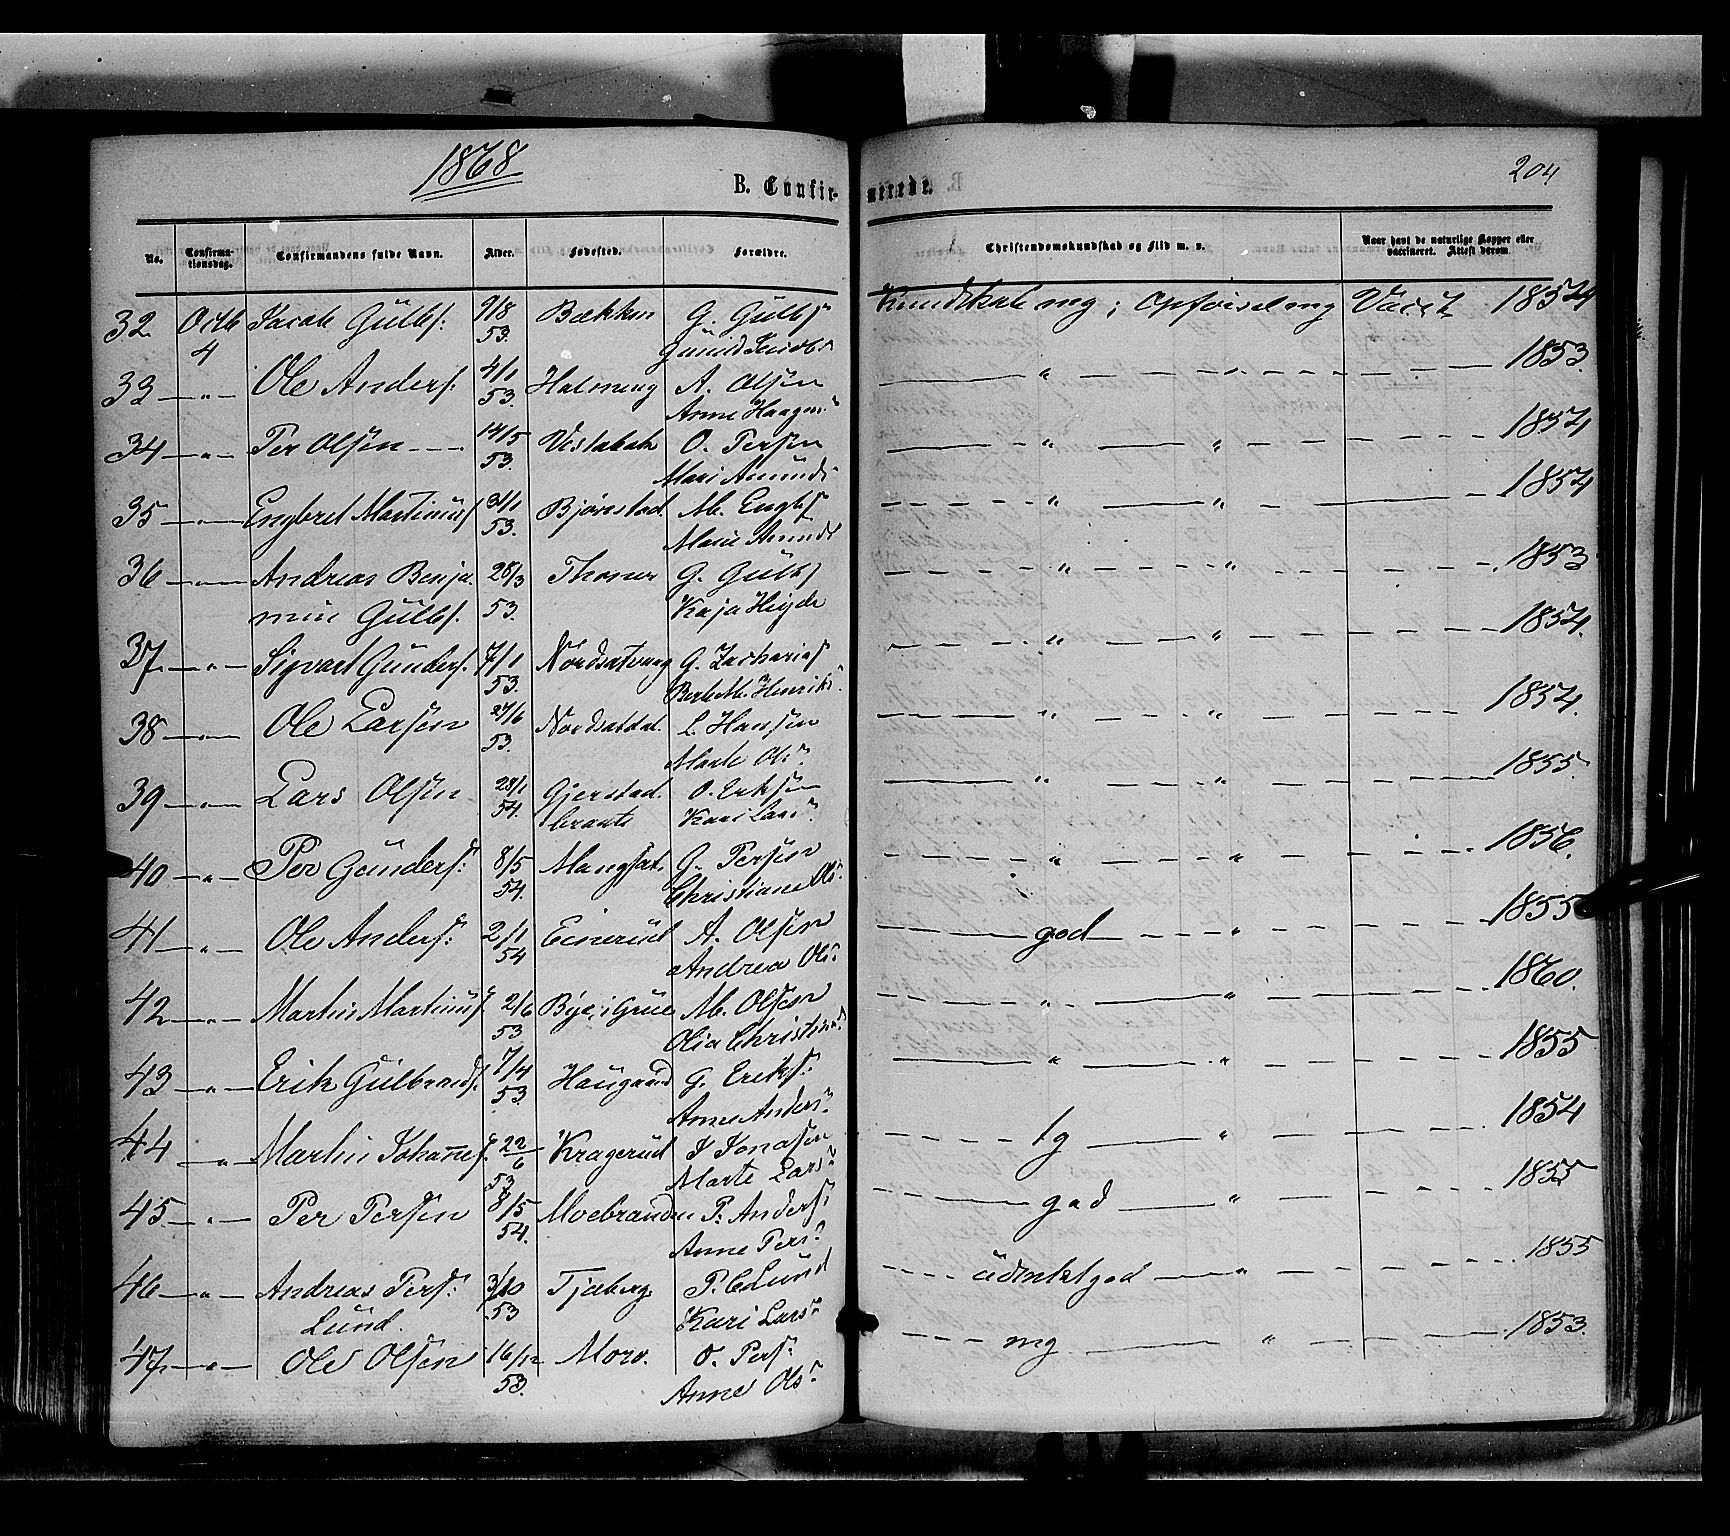 1868
B. Confirmerede.
204
No. Confirmationsdag. Confirmandens fulde Navn. Alder. Fødested. Forældre. Christendomskundskab og Flid m. v. Naar havt de naturlige Kopper eller vaccineret. Attest derom.
32 Octb 4 Jacob Gulbs: 9/8 53. Bækken G. Gulbs Kundskab mg; Opførsel mg Vacct 1854
33 — " — Ole Anders: 4/1 53. A. Olsen Anne Haagens " " 1853.
34 — " — Per Olsen 14/5 53. O. Persen Mari Amunds " " 1854
35 — " — Engbret Martinus 31/1 53. Bjørnstad. M. Engbs Marie Amunds " " 1854
36 — " — Andreas Benja 28/3 Thoner G. Gulbs " " 1853
min Gulbs. 53. Kaja
37. — " — Sigvart Gunders. 7/1 53. G. Zacharias Berte M. Henriks. " " 1854.
38 — " — Ole Larsen 27/6 53. L. Hansen Marte Ols: " " 1854.
39 — " — Lars Olsen 28/1 54. Gjerstad. braate O. Eriksen Kari Lars: " " 1855.
40 — " — Per Gunders: 8/5 54. Mangsat. G. Persen Christiane Ols: " " 1856.
41 — " — Ole Anders: 2/1 54 Einerud A. Olsen Andrea Ols: god " 1855
42 — " — Martin Martinus. 2/6 53 Bye, i Grue M. Olsen Olia Christians: " " 1860.
43 — " — Erik Gulbrands. 7/4 53. Haugerud G. Eriks: Anne Anders: " " 1855
44 — " — Martin Johannes. 22/6 53 Kragerud J Jonasen Marte Lars: tg " 1854
45 — " — Per Persen 8/5 54. Moebranden P. Anders: Anne Pers: god " 1855
46 — " — Andreas Pers: 3/10 Tjæberg. P. E Lund üdmkt god " 1855
Lund. 53 Kari Lars:
47. — " — Ole Olsen 16/12 53. Moro. O. Pers: Anne Ols: mg " 1853.